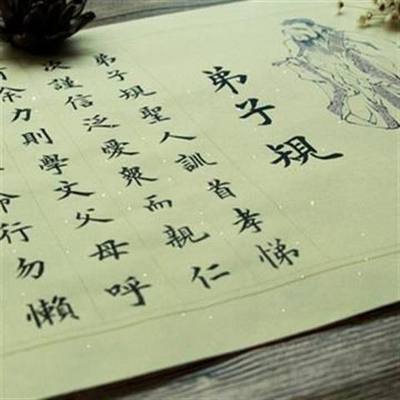 弟子規
弟子規聖人訓首孝悌
次謹信泛愛衆而親仁
余力則學文父母呼
命行勿懶